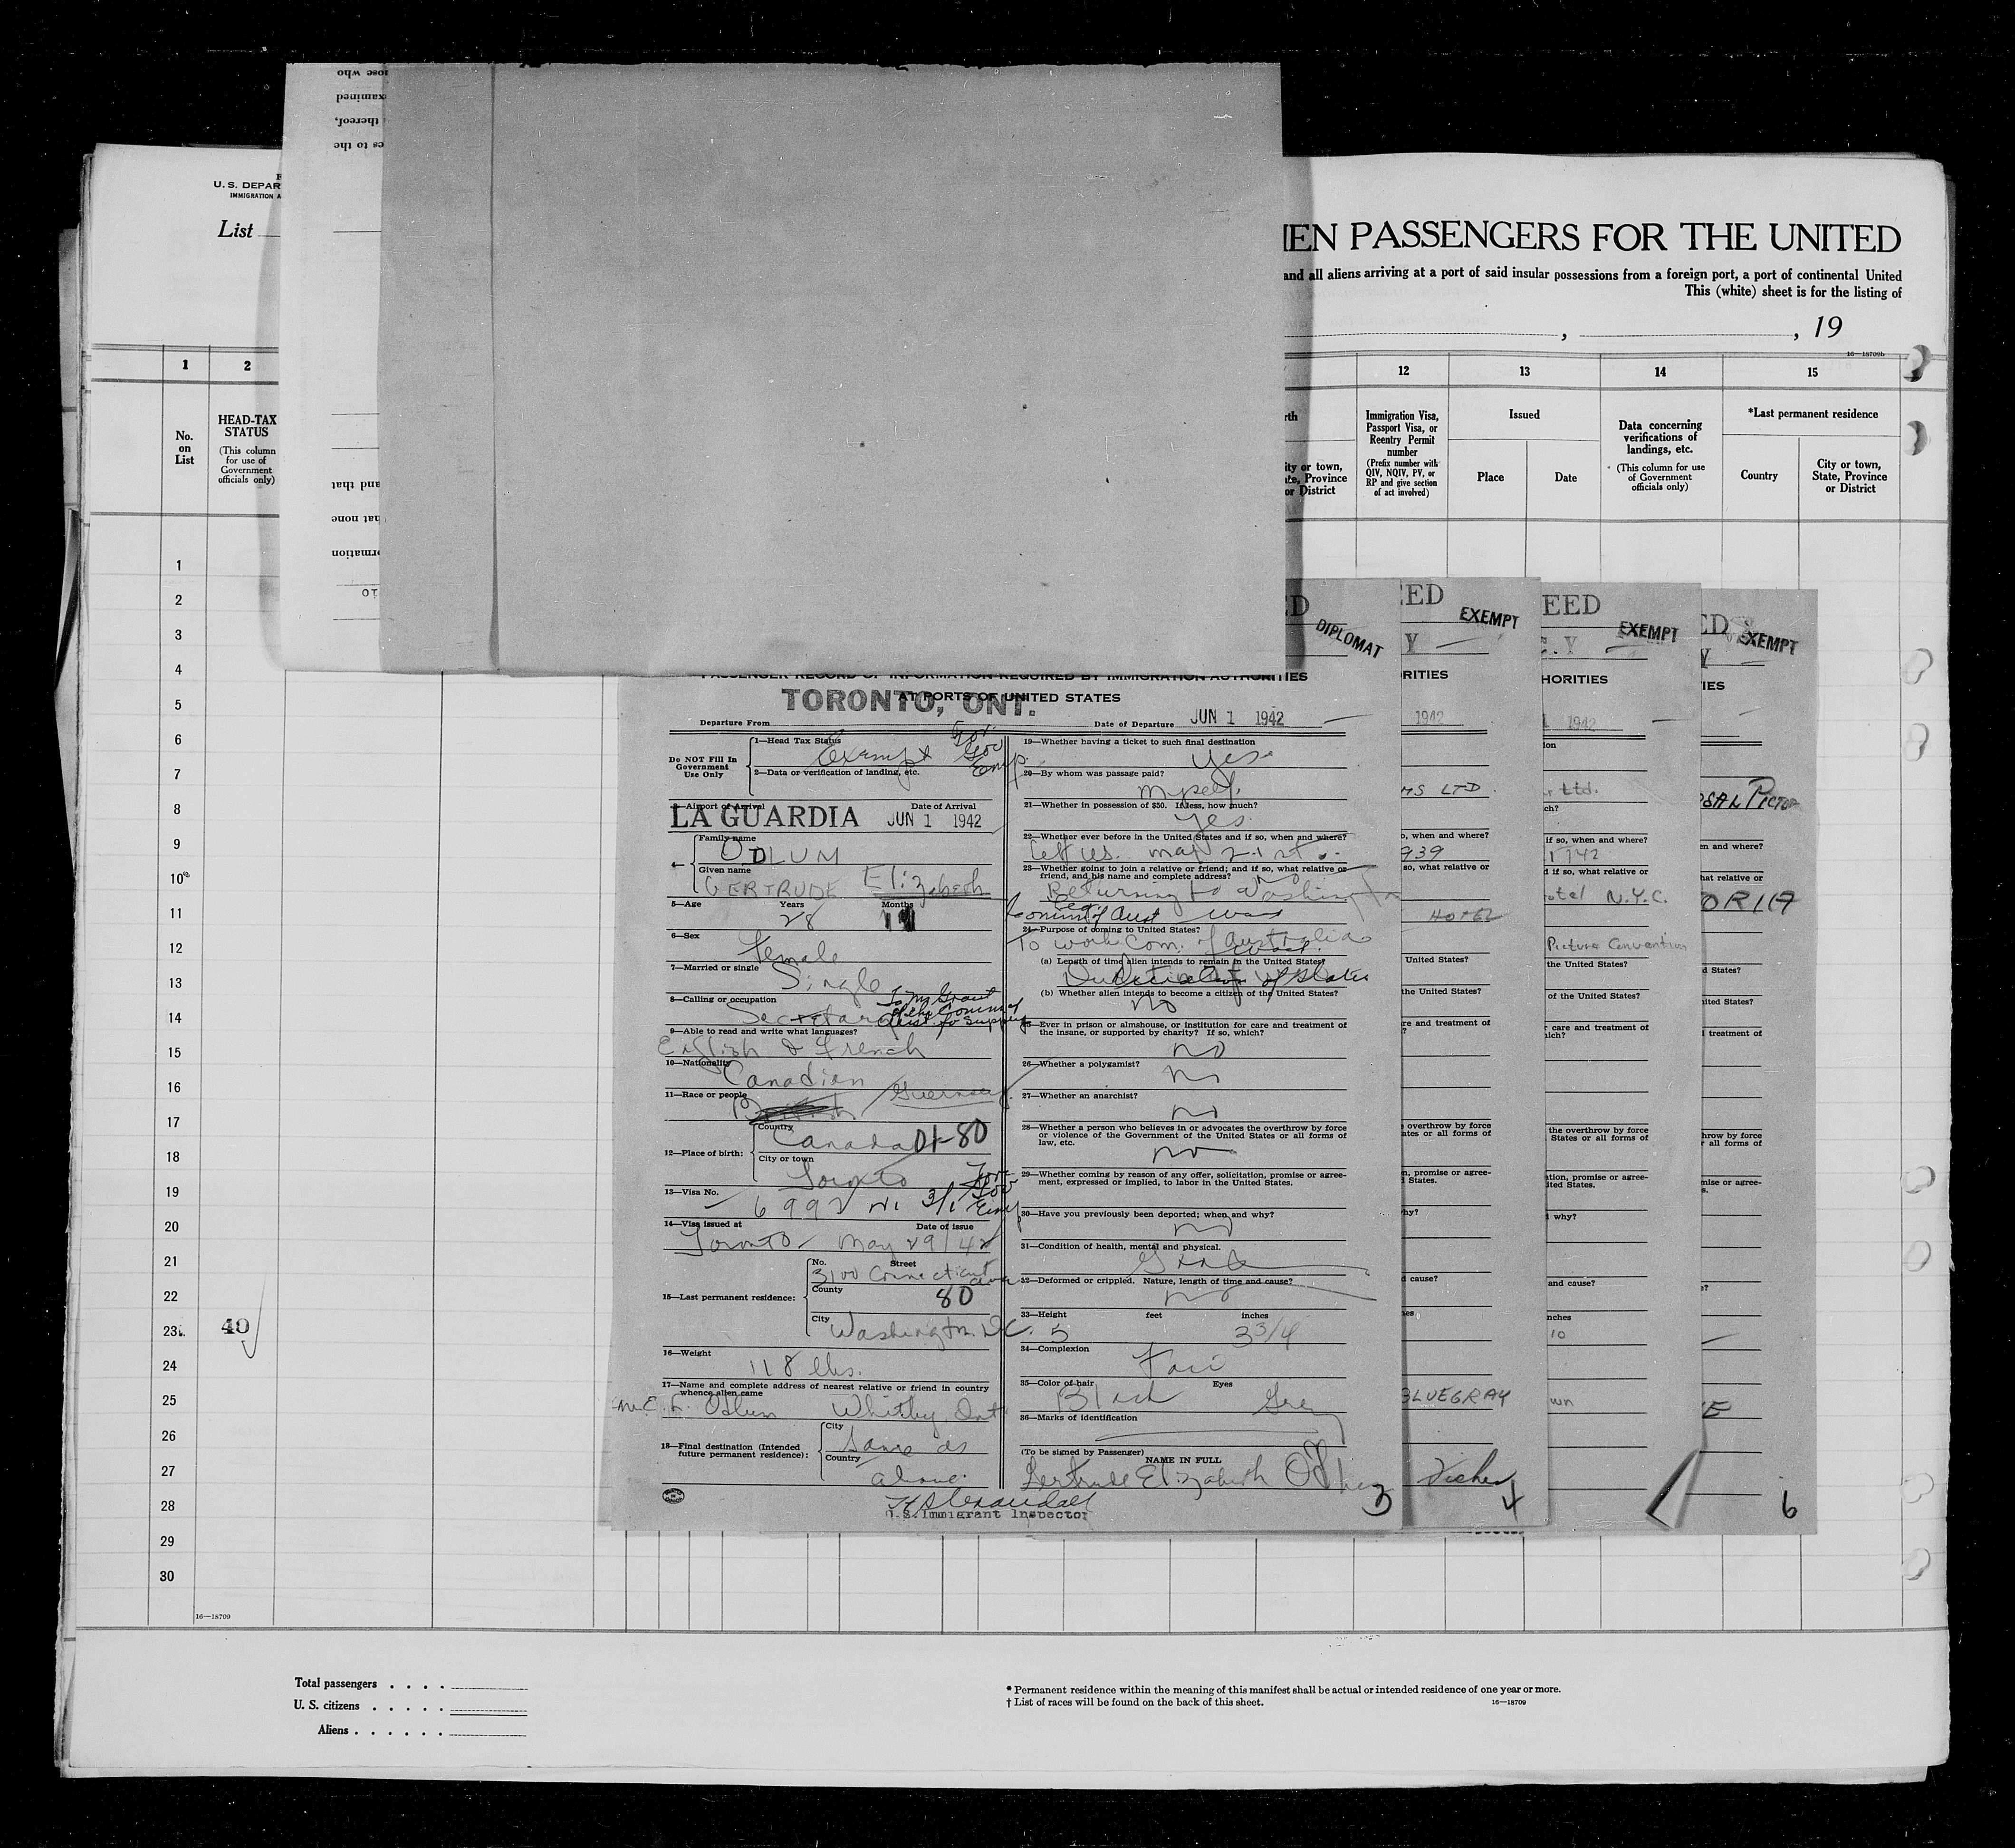 U. S. DEPAR
IMMIGRATION A
List
IEN PASSENGERS FOR THE UNITED
and all aliens arriving at a port of said insular possessions from a foreign port, a port of continental United
This (white) sheet is for the listing of
, , 19
16—18709b
1 2 12 13 14 15
No. on List
HEAD-TAX STATUS
(This column for use of Government officials only)
rth
ity or town,
te, Province
or District
Immigration Visa, Passport Visa, or Reentry Permit number
(Prefix number with QIV, NQIV, PV, or RP and give section of act involved)
Issued
Place Date
Data concerning verifications of landings, etc.
(This column for use of Government officials only)
*Last permanent residence
Country
City or town, State, Province or District
ose who
xamined
thereof,
es to the
and that
hat none
ormation
1
2
3
4
5
6
7
8
9
10
11
12
13
14
15
16
17
18
19
20
21
22
23
24
25
26
27
28
29
30
40
16—18709
DIPLOMAT
PASSENGER RECORD OF INFORMATION REQUIRED BY IMMIGRATION AUTHORITIES
AT PORTS OF UNITED STATES
TORONTO, ONT.
Departure From
Date of Departure JUN 1 1942
Do NOT Fill In Government Use Only
1—Head Tax Status
Exempt
2—Data or verification of landing, etc.
3—Airport of Arrival Date of Arrival
LA GUARDIA JUN 1 1942
4—
Family name
ODLUM
Given name
GERTRUDE Elizabeth
5—Age Years Months
28
6—Sex
Female
7—Married or single
Single
8—Calling or occupation
Secretary
9—Able to read and write what languages?
English & French
10—Nationality
Canadian
11—Race or people
12—Place of birth:
Country
Canada 01-80
City or town
Toronto
13—Visa No.
6992
14—Visa issued at Date of issue
Toronto May 29/42
15—Last permanent residence:
No. Street
3100 Connecticut Ave
County
80
City
Washington D.C.
16—Weight
118 lbs.
17—Name and complete address of nearest relative or friend in country whence alien came
Odlum Whitby Ont
18—Final destination (Intended future permanent residence):
City
Same as
Country
above.
U.S. Immigrant Inspector
19—Whether having a ticket to such final destination
Yes
20—By whom was passage paid?
Myself
21—Whether in possession of $50. If less, how much?
Yes
22—Whether ever before in the United States and if so, when and where?
left U.S. May 21st
23—Whether going to join a relative or friend; and if so, what relative or friend, and his name and complete address?
Returning to Washington
24—Purpose of coming to United States?
To work Com. of Australia
(a) Length of time alien intends to remain in the United States?
(b) Whether alien intends to become a citizen of the United States?
no
25—Ever in prison or almshouse, or institution for care and treatment of the insane, or supported by charity? If so, which?
no
26—Whether a polygamist?
no
27—Whether an anarchist?
no
28—Whether a person who believes in or advocates the overthrow by force or violence of the Government of the United States or all forms of law, etc.
no
29—Whether coming by reason of any offer, solicitation, promise or agreement, expressed or implied, to labor in the United States.
30—Have you previously been deported; when and why?
no
31—Condition of health, mental and physical.
Good
32—Deformed or crippled. Nature, length of time and cause?
no
33—Height feet inches
5 3 3/4
34—Complexion
Fair
35—Color of hair Eyes
Grey
36—Marks of identification
(To be signed by Passenger)
NAME IN FULL
Gertrude Elizabeth Odlum
3
EED
EXEMPT
RITIES
1942
MS LTD
o, when and where?
939
so, what relative or
HOTEL
United States?
the United States?
re and treatment of
overthrow by force
ates or all forms of
n, promise or agree-
d States.
hy?
d cause?
BLUEGRAY
Fisher
4
EED
EXEMPT
HORITIES
1942
Ltd.
if so, when and where?
1942
d if so, what relative or
otel N.Y.C.
Picture Convention
the United States?
of the United States?
r care and treatment of
the overthrow by force
States or all forms of
ation, promise or agree-
ited States.
why?
and cause?
nches
10
wn
ED
EXEMPT
IES
SAL PICTOR
en and where?
hat relative or
ORIA
d States?
nited States?
treatment of
hrow by force
r all forms of
mise or agree-
6
Total passengers . . . .
U. S. citizens . . . . .
Aliens . . . . . .
* Permanent residence within the meaning of this manifest shall be actual or intended residence of one year or more.
† List of races will be found on the back of this sheet.
16—18709